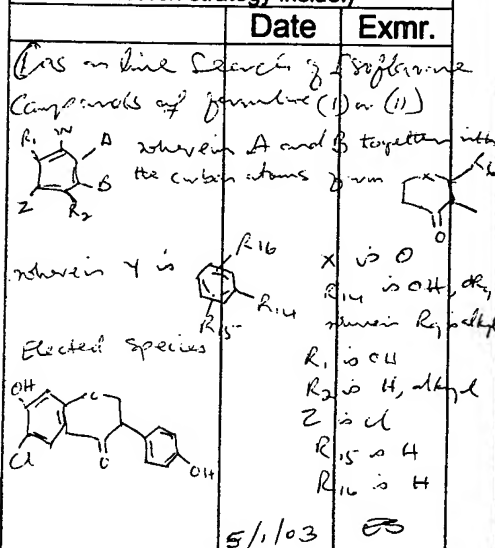 Date Exmr.
Cas on line Search of Isoflavone
Compounds of formulae (I) or (II)
R1 W A wherein A and B together with
B the carbon atoms form R6
Z R2 X O
wherein Y is R16 X is O
R14 R14 is OH, OR9
R15 wherein R9 is alkyl
Elected Species R1 is OH
OH R2 is H, alkyl
Z is Cl
Cl O OH R15 is H
R16 is H
5/1/03